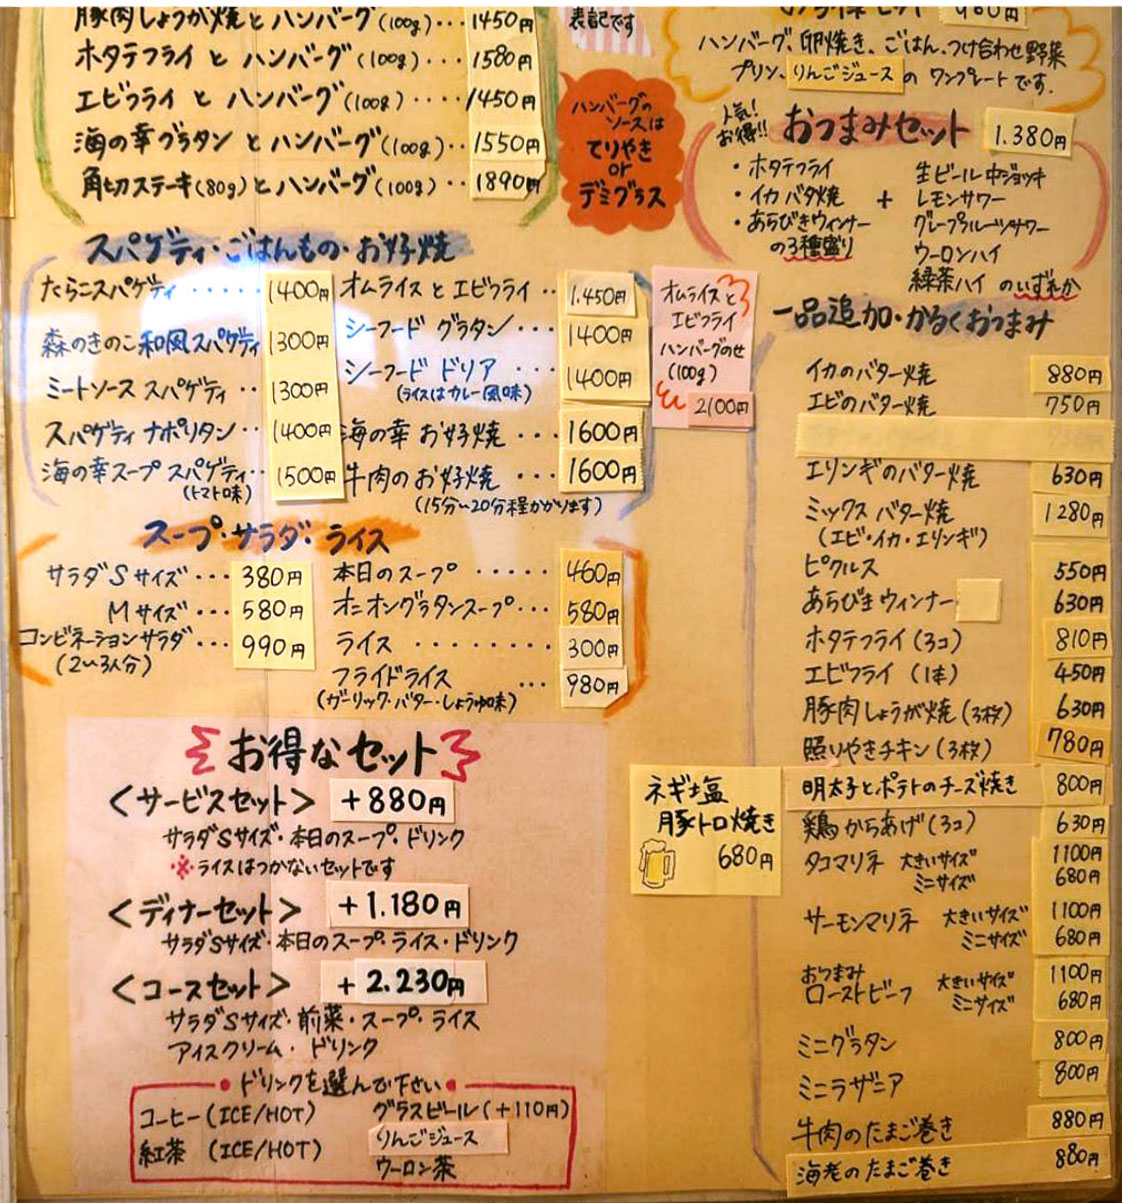 豚肉しょうが焼とハンバーグ(100g)‥ 1450円
ホタテフライ と ハンバーグ(100g)‥‥ 1580円
エビフライ と ハンバーグ(100g)‥‥ 1450円
海の幸グラタン と ハンバーグ(100g)‥ 1550円
角切ステーキ(80g)とハンバーグ(100g)‥ 1890円
表記です
ハンバーグの
ソースは
てりやき
or
デミグラス
980円
ハンバーグ、卵焼き、ごはん、つけ合わせ野菜
プリン、りんごジュース の ワンプレートです.
人気!
お得!!
おつまみセット 1.380円
・ホタテフライ
・イカ バタ焼
・あらびきウィンナー
の3種盛り
+
生ビール 中ジョッキ
レモンサワー
グレープフルーツサワー
ウーロンハイ
緑茶ハイ のいずれか
スパゲティ・ごはんもの・お好焼
たらこスパゲティ ‥‥‥ 1400円
森のきのこ和風スパゲティ 1300円
ミートソース スパゲティ ‥ 1300円
スパゲティ ナポリタン‥ 1400円
海の幸スープ スパゲティ‥ 1500円
(トマト味)
オムライス と エビフライ ‥ 1.450円
シーフード グラタン ‥‥ 1400円
シーフード ドリア ‥‥ 1400円
(ライスはカレー風味)
海の幸 お好焼 ‥‥ 1600円
牛肉の お好焼 ‥‥ 1600円
(15分〜20分程かかります)
オムライスと
エビフライ
ハンバーグのせ
(100g)
2100円
スープ・サラダ・ライス
サラダSサイズ ‥‥ 380円
Mサイズ ‥‥ 580円
コンビネーションサラダ ‥‥ 990円
(2〜3人分)
本日のスープ ‥‥‥ 460円
オニオングラタンスープ‥‥ 580円
ライス ‥‥‥‥ 300円
フライドライス ‥‥ 980円
(ガーリック・バター・しょうゆ味)
お得なセット
<サービスセット> +880円
サラダSサイズ・本日のスープ・ドリンク
※ライスはつかないセットです
<ディナーセット> +1.180円
サラダSサイズ・本日のスープ・ライス・ドリンク
<コースセット> +2.230円
サラダSサイズ・前菜・スープ・ライス
アイスクリーム・ドリンク
・ドリンクを選んで下さい・
コーヒー(ICE/HOT)
紅茶 (ICE/HOT)
グラスビール(+110円)
りんごジュース
ウーロン茶
ネギ塩
豚トロ焼き
680円
一品追加・かるくおつまみ
イカのバター焼 880円
エビのバター焼 750円
エリンギのバター焼 630円
ミックス バター焼 1280円
(エビ・イカ・エリンギ)
ピクルス 550円
あらびきウィンナー 630円
ホタテフライ(3コ) 810円
エビフライ (1本) 450円
豚肉しょうが焼(3枚) 630円
照りやきチキン(3枚) 780円
明太子とポテトのチーズ焼き 800円
鶏からあげ(3コ) 630円
タコマリネ 大きいサイズ 1100円
ミニサイズ 680円
サーモンマリネ 大きいサイズ 1100円
ミニサイズ 680円
おつまみ
ローストビーフ 大きいサイズ 1100円
ミニサイズ 680円
ミニグラタン 800円
ミニラザニア 800円
牛肉のたまご巻き 880円
海老のたまご巻き 880円